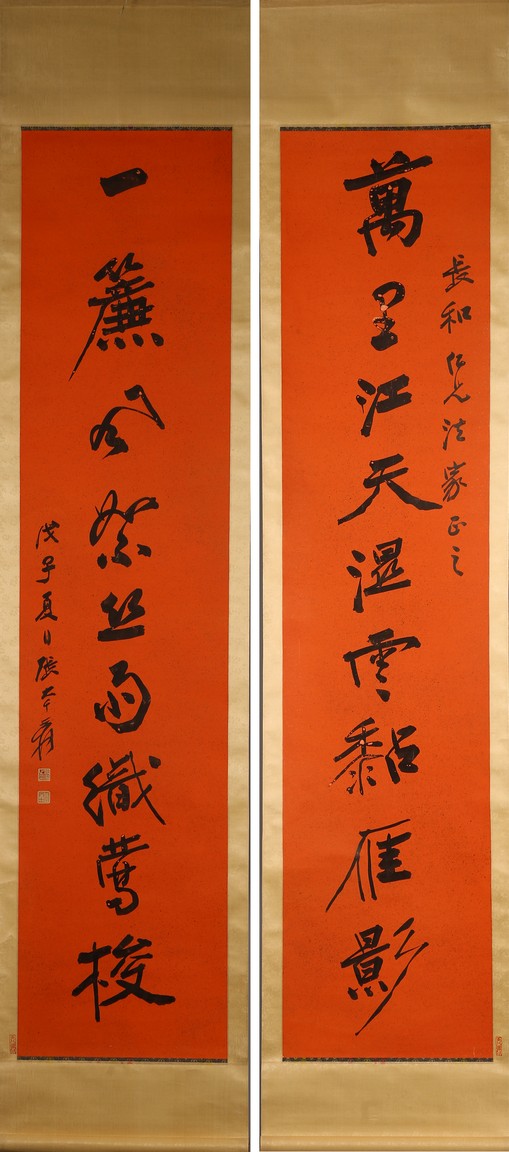 長和仁兄法家正之
萬里江天湿雲黏雁影
一簾风絮丝雨織鶯梭
戊子夏日張大千爰